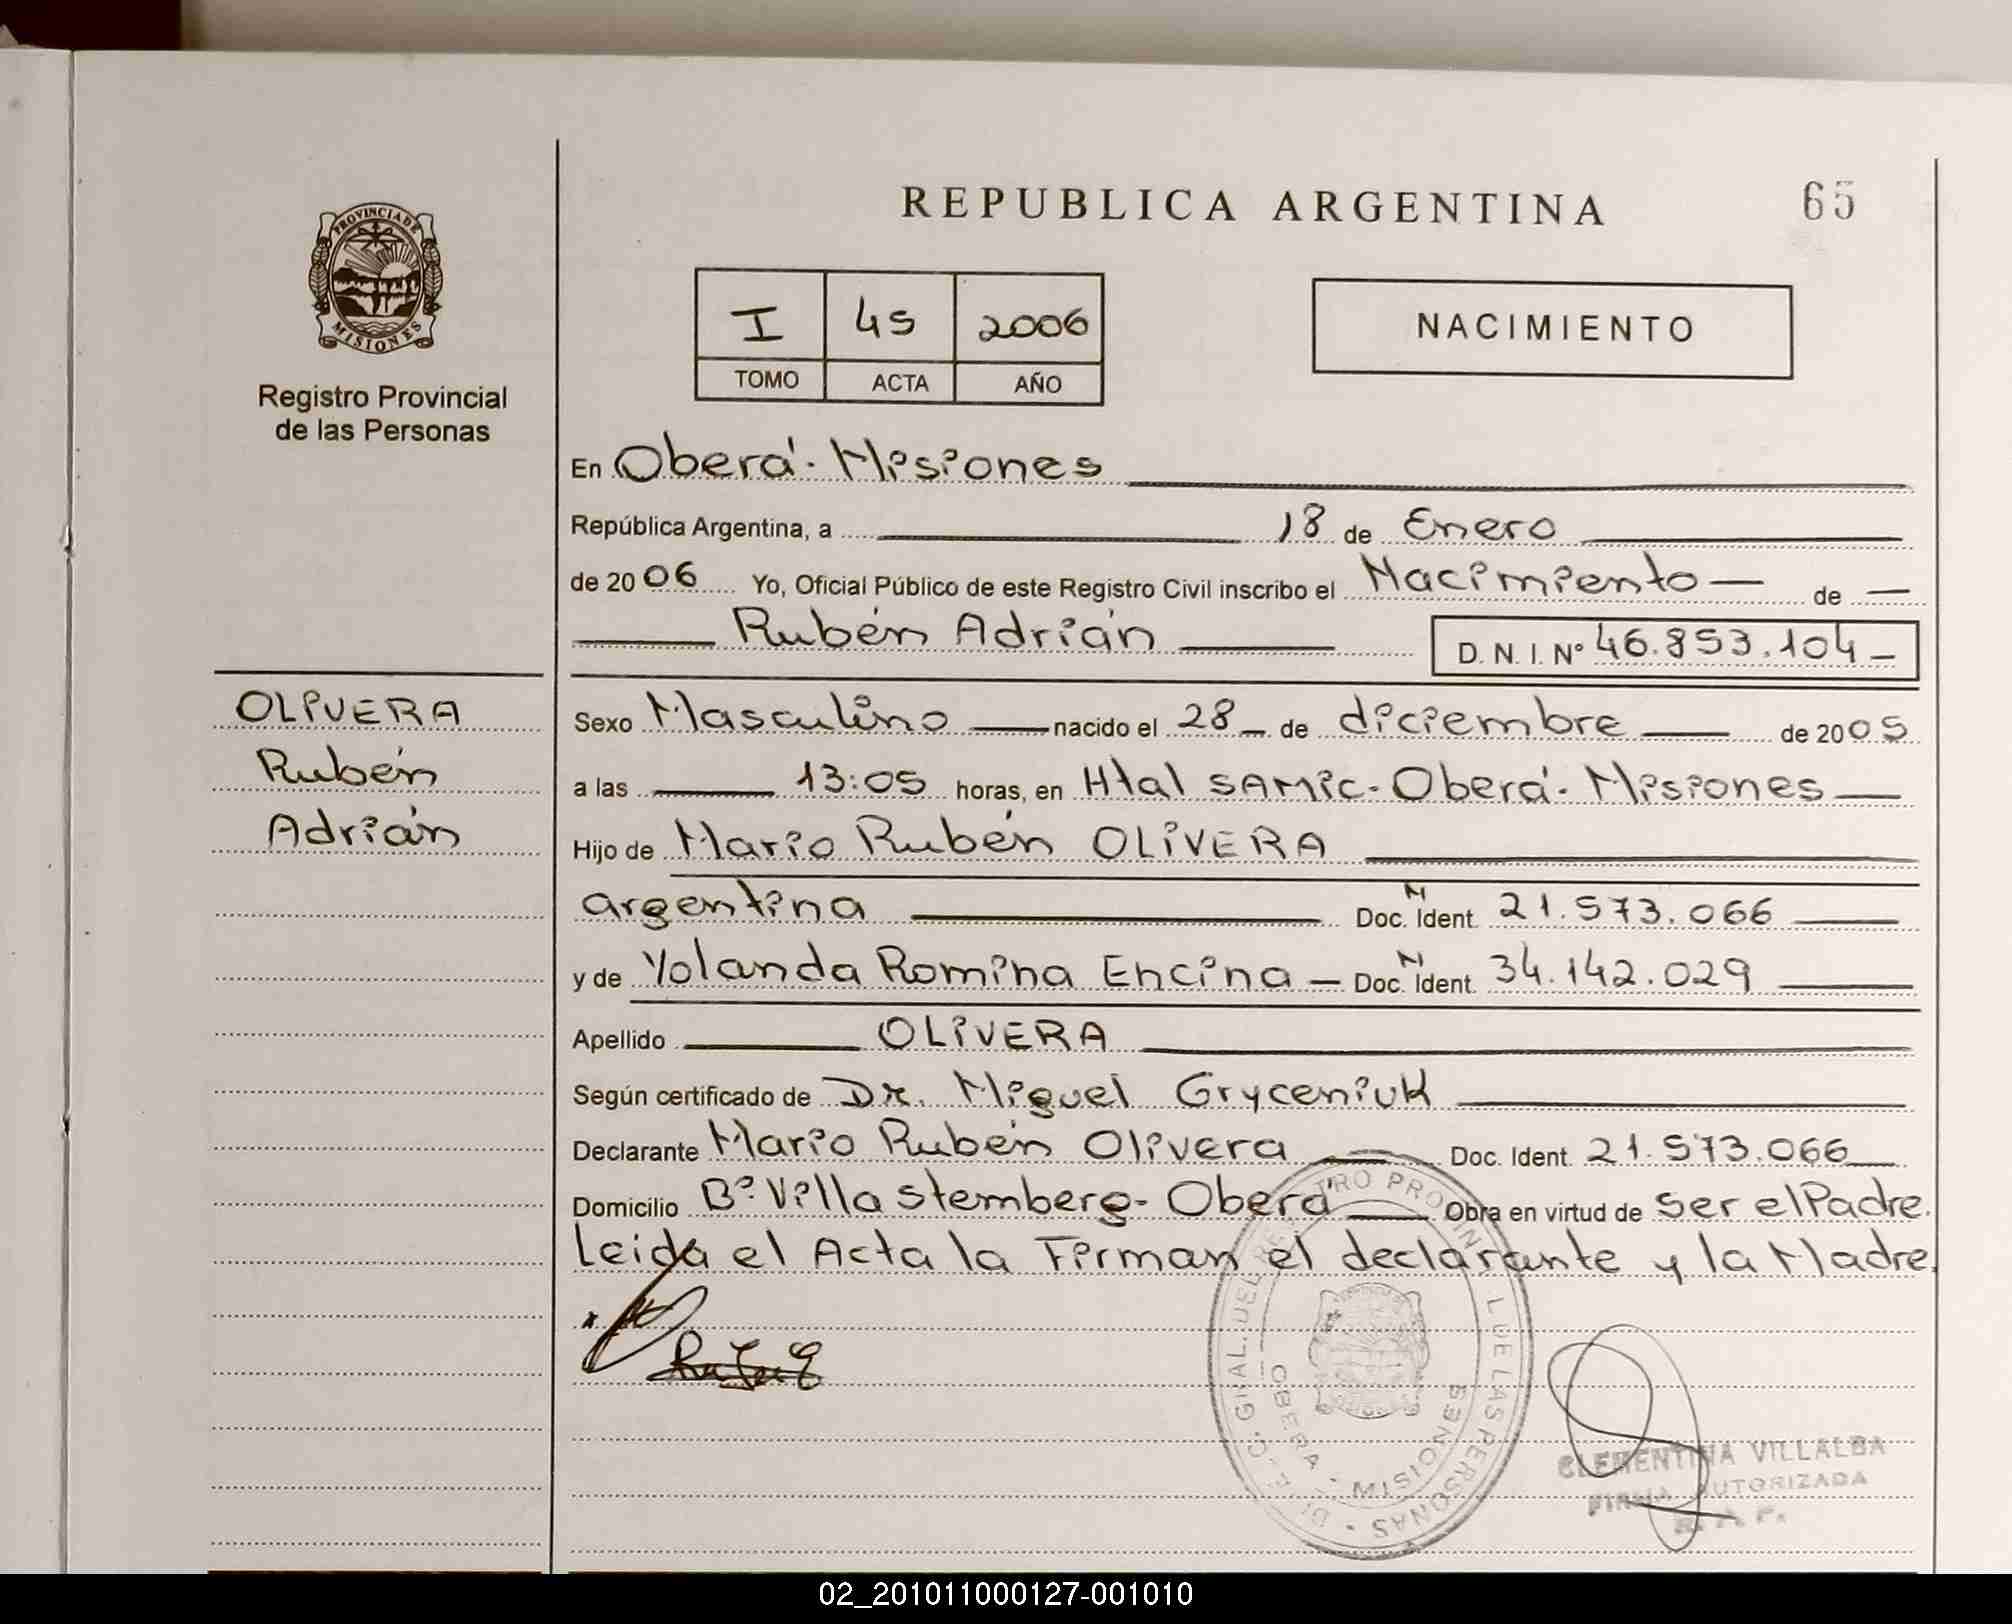 REPUBLICA ARGENTINA
65
PROVINCIA DE
MISIONES
Registro Provincial
de las Personas
I 45 2006
TOMO ACTA AÑO
NACIMIENTO
En Oberá. Misiones
República Argentina, a 18 de Enero
de 2006 Yo, Oficial Público de este Registro Civil inscribo el Nacimiento — de —
Rubén Adrián D. N. I. Nº 46.853.104 —
OLIVERA
Rubén
Adrián
Sexo Masculino — nacido el 28 — de diciembre — de 2005
a las 13:05 horas, en Htal SAMic - Oberá. Misiones —
Hijo de Mario Rubén OLIVERA
argentina Doc. N Ident. 21.573.066
y de Yolanda Romina Encina — Doc. N Ident. 34.142.029
Apellido OLIVERA
Según certificado de Dr. Miguel Gryceniuk
Declarante Mario Rubén Olivera — Doc. Ident. 21.573.066
Domicilio Bº Villa Stemberg - Oberá Obra en virtud de ser el Padre.
Leida el Acta la Firman el declarante y la Madre.
OBERA - MISIONES
CLEMENTINA VILLALBA
FIRMA AUTORIZADA
02_201011000127-001010